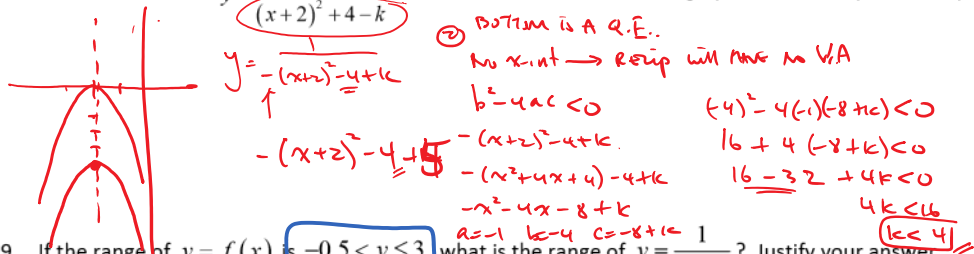 (x+2)² + 4 − k
y = 1 / −(x+2)² − 4 + k
−(x+2)² − 4 + 5
② BOTTOM is A Q.E..
No x-int → Recip will HAVE No V.A
b² − 4ac < 0
−(x+2)² − 4 + k.
−(x² + 4x + 4) − 4 + k
−x² − 4x − 8 + k
a = −1 b = −4 c = −8 + k
(−4)² − 4(−1)(−8 + k) < 0
16 + 4(−8 + k) < 0
16 − 32 + 4k < 0
4k < 16
k < 4
9. If the range of y = f(x) is −0.5 < y < 3, what is the range of y = 1 / ? Justify your answer